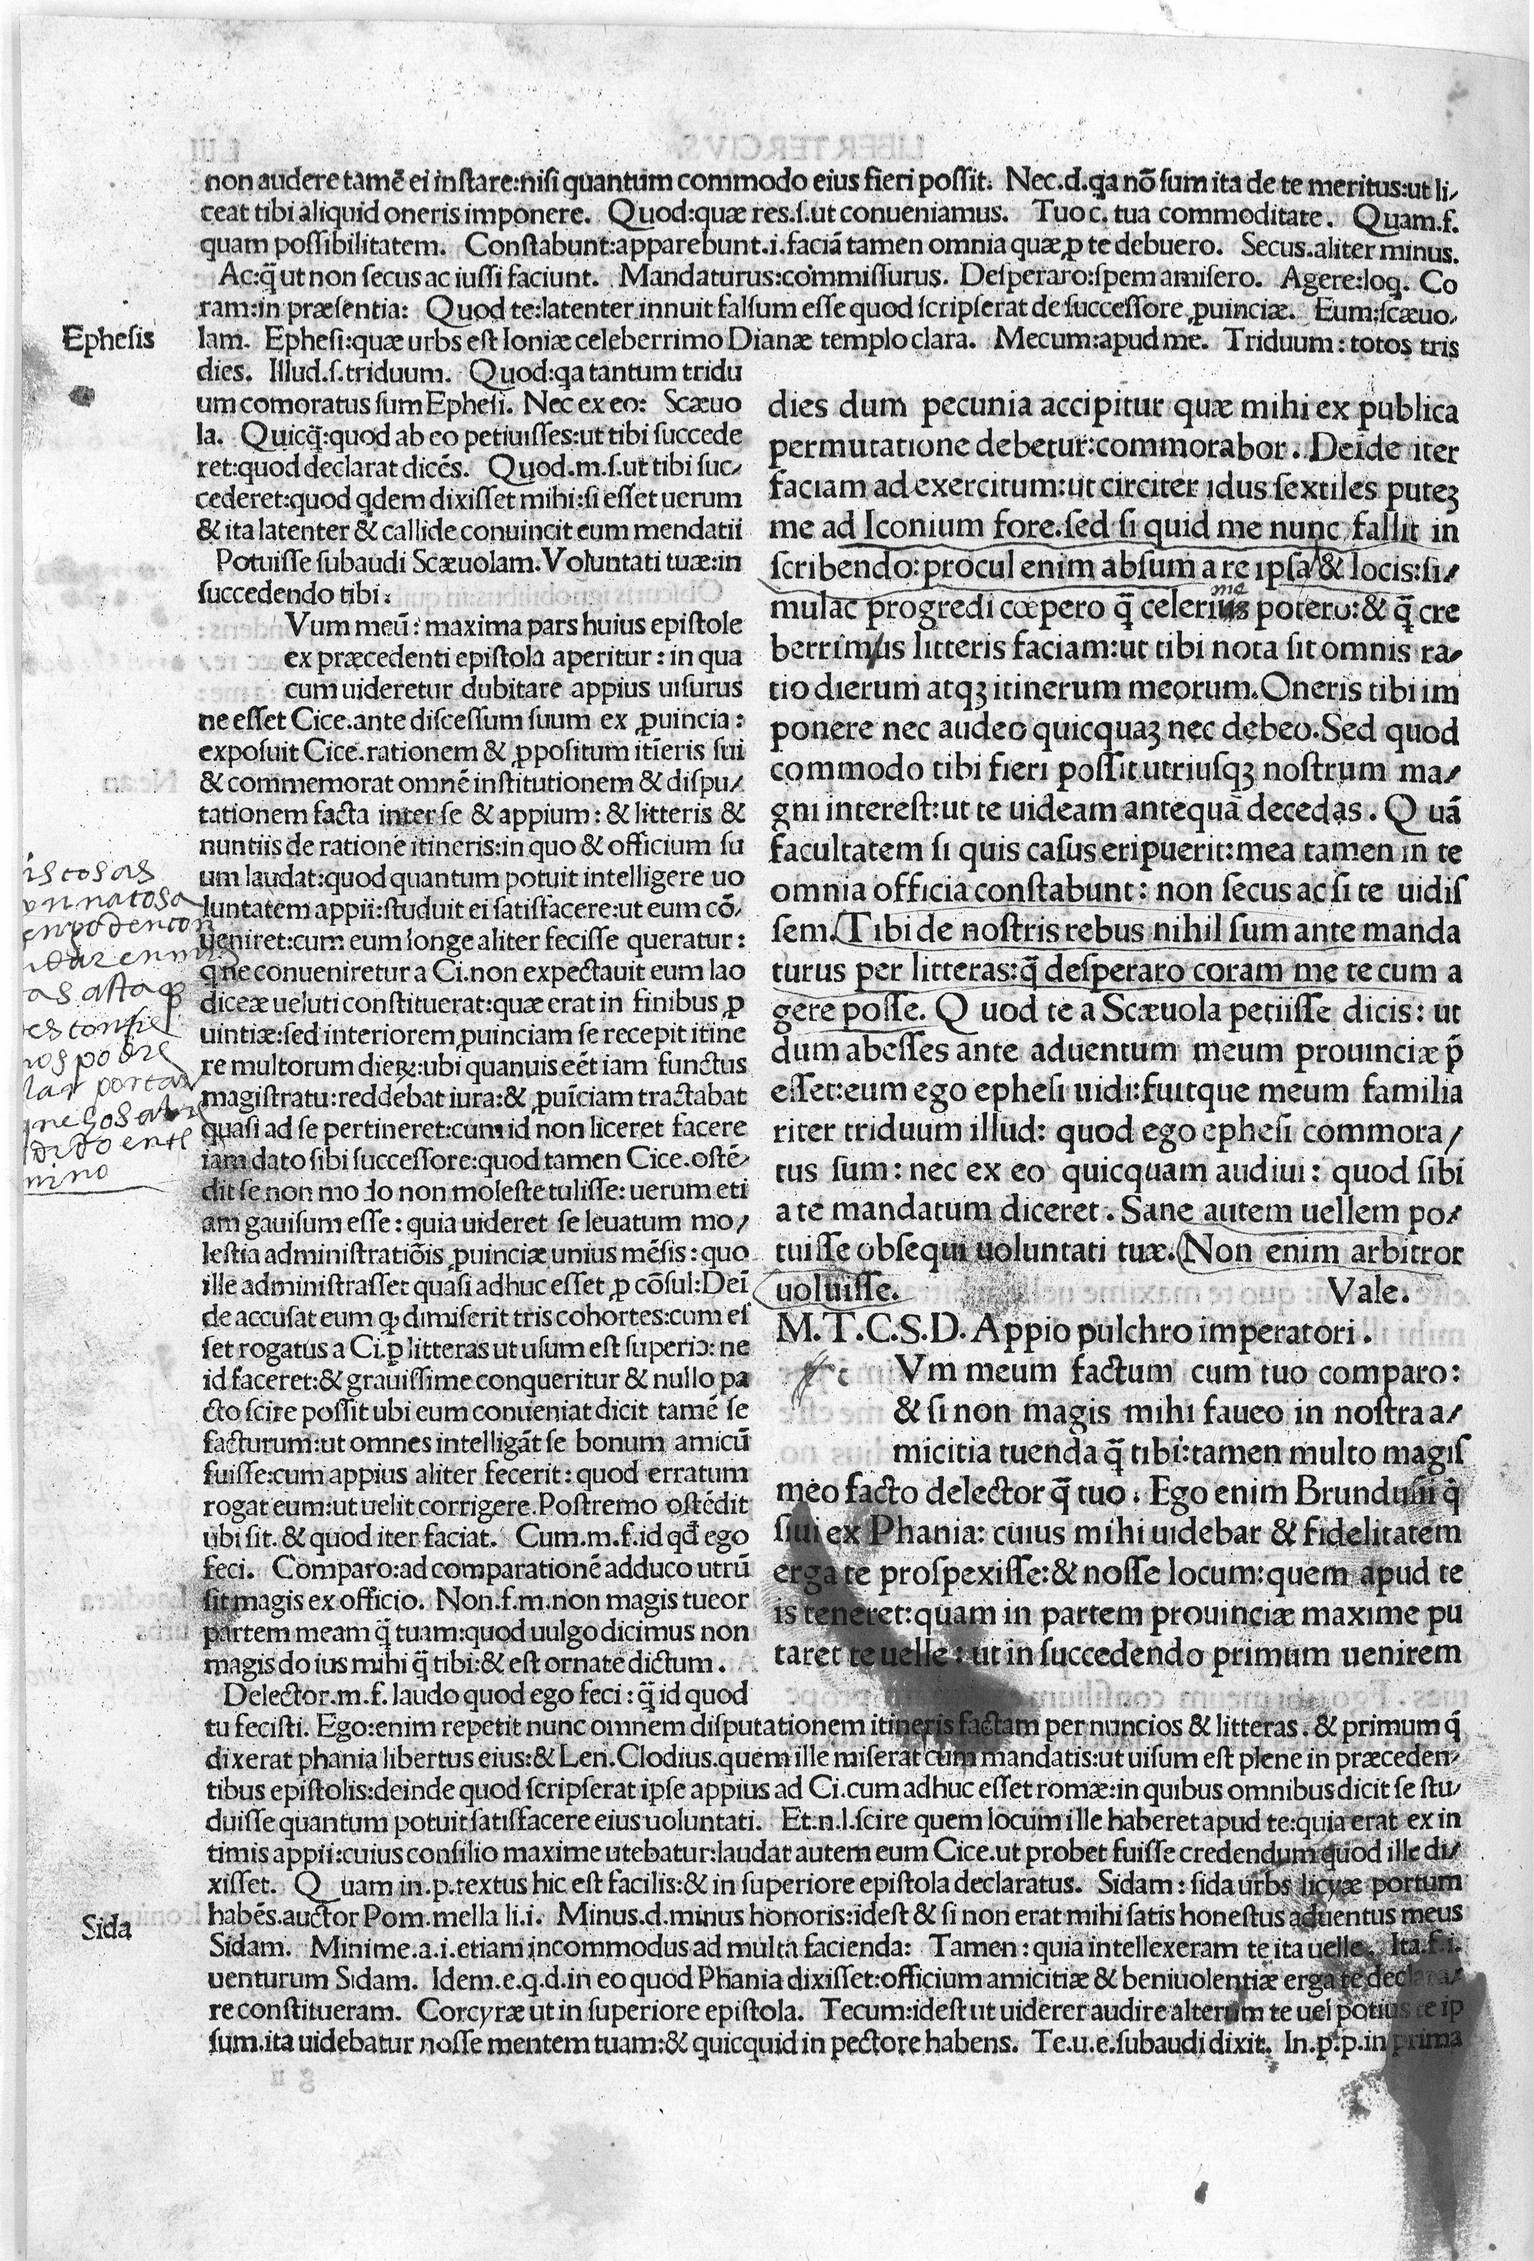 non audere tamē ei instare:nisi quantum commodo eius fieri possit. Nec.d.qa nō sum ita de te meritus:ut li-
ceat tibi aliquid oneris imponere. Quod:quæ res.s.ut conueniamus. Tuo c. tua commoditate. Quam.f.
quam possibilitatem. Constabunt:apparebunt.i.faciā tamen omnia quæ ꝓ te debuero. Secus.aliter minus.
Ac:q̄ ut non secus ac iussi faciunt. Mandaturus:commissurus. Desperaro:spem amisero. Agere:loq. Co
ram:in præsentia: Quod te:latenter innuit falsum esse quod scripserat de successore ꝓuinciæ. Eum:scæuo-
Ephesis
lam. Ephesi:quæ urbs est Ioniæ celeberrimo Dianæ templo clara. Mecum:apud me. Triduum:totos tris
dies. Illud.s.triduum. Quod:qa tantum tridu
um comoratus sum Ephesi. Nec ex eo: Scæuo
la. Quicq̄:quod ab eo petiuisses:ut tibi succede
ret:quod declarat dicēs. Quod.m.s.ut tibi suc-
cederet:quod qdem dixisset mihi:si esset uerum
& ita latenter & callide conuincit eum mendatii
Potuisse subaudi Scæuolam. Voluntati tuæ:in
succedendo tibi.
Vum meū: maxima pars huius epistole
ex præcedenti epistola aperitur: in qua
cum uideretur dubitare appius uisurus
ne esset Cice.ante discessum suum ex ꝓuincia:
exposuit Cice.rationem & ꝓpositum itīeris sui
& commemorat omnē institutionem & dispu/
tationem facta inter se & appium: & litteris &
nuntiis de ratione itineris:in quo & officium su
um laudat:quod quantum potuit intelligere uo
luntatem appii:studuit ei satisfacere:ut eum cō-
ueniret:cum eum longe aliter fecisse queratur:
q ne conueniretur a Ci.non expectauit eum lao
diceæ ueluti constituerat:quæ erat in finibus ꝓ
uintiæ:sed interiorem ꝓuinciam se recepit itine
re multorum dieꝝ:ubi quanuis eēt iam functus
magistratu:reddebat iura:& ꝓuīciam tractabat
quasi ad se pertineret:cum id non liceret facere
iam dato sibi successore:quod tamen Cice.ostē-
dit se non modo non moleste tulisse: uerum eti
am gauisum esse: quia uideret se leuatum mo/
lestia administratiōis ꝓuinciæ unius mēsis: quo
ille administrasset quasi adhuc esset ꝓ cōsul:Deī
de accusat eum ꝙ dimiserit tris cohortes:cum es
set rogatus a Ci.ꝑ litteras ut usum est superiꝰ: ne
id faceret:& grauissime conqueritur & nullo pa
cto scire possit ubi eum conueniat dicit tamē se
facturum:ut omnes intelligāt se bonum amicū
fuisse:cum appius aliter fecerit: quod erratum
rogat eum:ut uelit corrigere. Postremo ostēdit
ubi sit. & quod iter faciat. Cum.m.f.id qd ego
feci. Comparo:ad comparationē adduco utrū
sit magis ex officio. Non.f.m.non magis tueor
partem meam q̄ tuam:quod uulgo dicimus non
magis do ius mihi q̄ tibi:& est ornate dictum.
Delector.m.f. laudo quod ego feci: q̄ id quod
dies dum pecunia accipitur quæ mihi ex publica
permutatione debetur:commorabor. Deīde iter
faciam ad exercitum:ut circiter idus sextiles puteꝫ
me ad Iconium fore.sed si quid me nunc fallit in
scribendo:procul enim absum a re ipsa & locis:si-
mulac progredi cœpero q̄ celerius potero:& q̄ cre
berrimis litteris faciam:ut tibi nota sit omnis ra-
tio dierum atqꝫ itinerum meorum.Oneris tibi im
ponere nec audeo quicquaꝫ nec debeo.Sed quod
commodo tibi fieri possit utriusqꝫ nostrum ma/
gni interest:ut te uideam antequā decedas. Q uā
facultatem si quis casus eripuerit:mea tamen in te
omnia officia constabunt: non secus ac si te uidis
sem. Tibi de nostris rebus nihil sum ante manda
turus per litteras:q̄ desperaro coram me tecum a
gere posse. Q uod te a Scæuola petiisse dicis: ut
dum abesses ante aduentum meum prouinciæ p̄
esset:eum ego ephesi uidi:fuitque meum familia
riter triduum illud: quod ego ephesi commora/
tus sum: nec ex eo quicquam audiui: quod sibi
a te mandatum diceret. Sane autem uellem po-
tuisse obsequi uoluntati tuæ. Non enim arbitror
uoluisse. Vale.
M.T.C.S.D. Appio pulchro imperatori.
c Vm meum factum cum tuo comparo:
& si non magis mihi faueo in nostra a/
micitia tuenda q̄ tibi:tamen multo magis
meo facto delector q̄ tuo. Ego enim Brundusii q̄
siui ex Phania: cuius mihi uidebar & fidelitatem
erga te prospexisse:& nosse locum:quem apud te
is teneret:quam in partem prouinciæ maxime pu
taret te uelle: ut in succedendo primum uenirem
tu fecisti. Ego:enim repetit nunc omnem disputationem itineris factam per nuncios & litteras. & primum q̄
dixerat phania libertus eius:& Len.Clodius.quem ille miserat cum mandatis:ut uisum est plene in præceden-
tibus epistolis:deinde quod scripserat ipse appius ad Ci.cum adhuc esset romæ:in quibus omnibus dicit se stu-
duisse quantum potuit satisfacere eius uoluntati. Et.n.l.scire quem locum ille haberet apud te:quia erat ex in
timis appii:cuius consilio maxime utebatur:laudat autem eum Cice.ut probet fuisse credendum quod ille di/
xisset. Q uam in.p.textus hic est facilis:& in superiore epistola declaratus. Sidam: sida urbs licyæ portum
Sida
habēs.auctor Pom.mella li.i. Minus.d.minus honoris:idest & si non erat mihi satis honestus aduentus meus
Sidam. Minime.a.i.etiam incommodus ad multa facienda: Tamen: quia intellexeram te ita uelle. Ita.f.i.
uenturum Sidam. Idem.e.q.d.in eo quod Phania dixisset:officium amicitiæ & beniuolentiæ erga te declara/
re constitueram. Corcyræ ut in superiore epistola. Tecum:idest ut uiderer audire alterum te uel potius te ip
sum.ita uidebatur nosse mentem tuam:& quicquid in pectore habens. Te.u.e.subaudi dixit. In.p.p.in prima